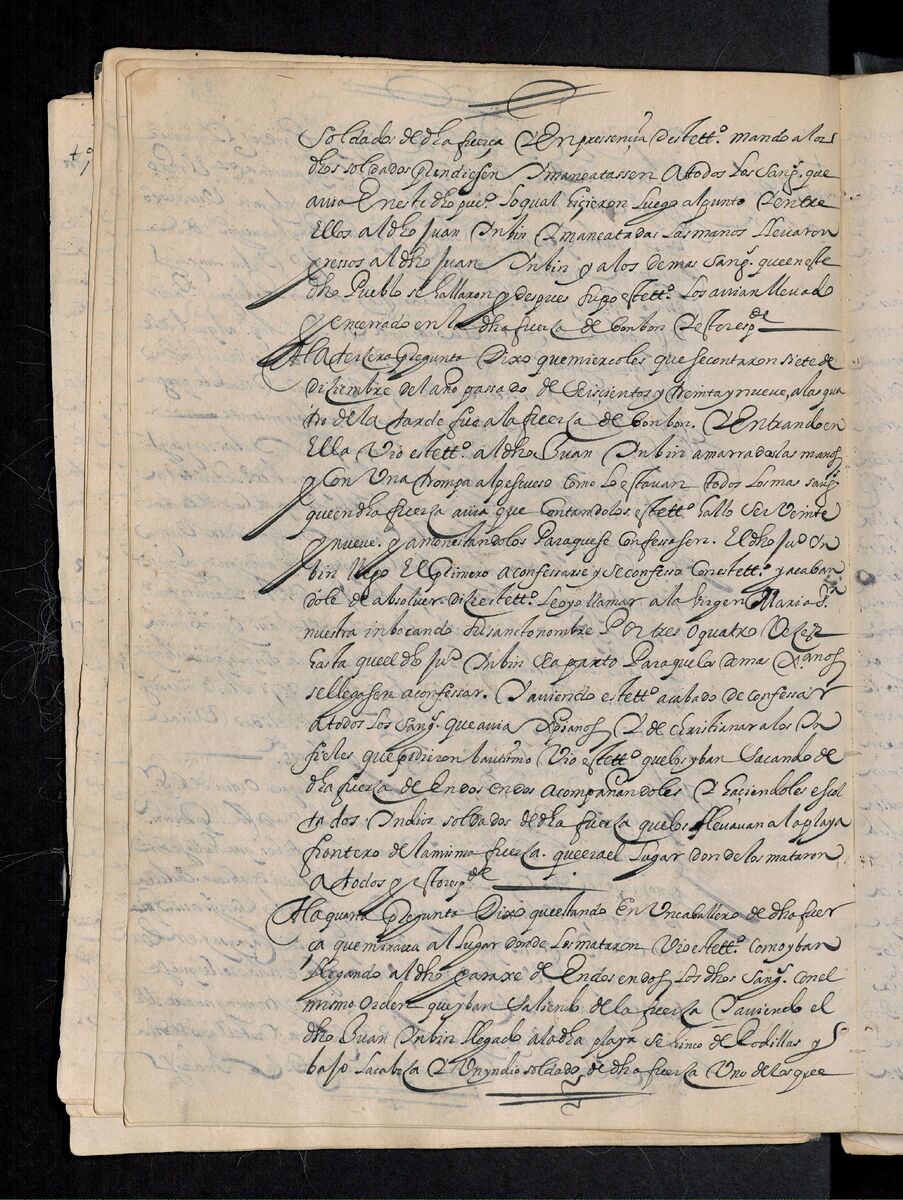 soldados de dha fuerça y En pressençia deste tt.º mando a los
dhos soldados prendiesen y maneatassen a todos los sang.s que
avia En este dho pue.º lo qual hiçieron luego al punto y entre
Ellos al dho Juan Inbin y maneatadas las manos llevaron
pressos al dho Juan Inbin y a los demas sang.s que en este
dho Pueblo se hallaron y despues supo este tt.º los avian llevado
y ençerrado en la dha fuerza de bonbon y esto resp.de
A la terzera pregunta Dixo que miercoles que se contaron siete de
diziembre del año passado de seiscientos y treinta y nueve, a las qua
tro de la tarde fue a la fuerza de bonbon. y Entrando en
Ella vio este tt.º al dho Juan Inbin amarradas las manos
y con una trompa al pescueso como lo estavan todos los mas sang.s
que en dha fuerza avia que contandolos este tt.º hallo ser veinte
y nueve. y amonestandolos Para que se confessasen. El dho Ju.º In
bin llego El primero a confessarse y se confesso con este tt.º y acaban
dole de absolver. dize este tt.º le oyo llamar a la Virgen Maria S.ra
nuestra inbocando su sancto nombre Por tres o quatro Vezes
hasta que el dho Ju.º Inbin se aparto Para que los demas Xpianos
se llegasen a confessar. y aviendo este tt.º acabado de confessar
a todos los sang.s que avia Xpianos y de christianar a los In
fieles que pidieron bautismo vio este tt.º que los yban sacando de
dha fuerza de En dos en dos acompañandoles y haçiendoles escol
ta dos Indios soldados de dha fuerza que los llevavan a la playa
frontero de la misma fuerza. que era el lugar donde los mataron
a todos y esto resp.de
A la quarta pregunta Dixo que estando En un caballero de dha fuer
ça que mirava al lugar donde los mataron vio este tt.º como yban
llegando al dho paraxe de En dos en dos los dhos sang.s con el
mismo orden que yban saliendo de la fuerza y aviendo el
dho Juan Inbin llegado a la dha playa se hinco de Rodillas y
bajo la cabeza y un yndio soldado de dha fuerza uno de los que